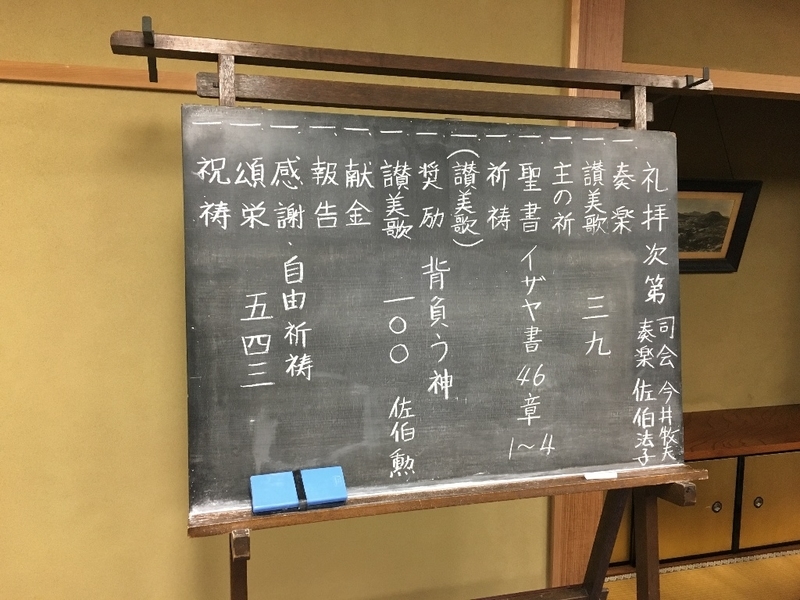 礼拝次第 司会 今井牧夫
奏楽 佐伯法子
一 奏楽
一 讃美歌 三九
一 主の祈
一 聖書 イザヤ書 46章 1〜4
一 祈祷
一 (讃美歌)
一 奨励 背負う神
一 讃美歌 一〇〇 佐伯勲
一 献金
一 報告
一 感謝・自由祈祷
一 頌栄 五四三
一 祝祷